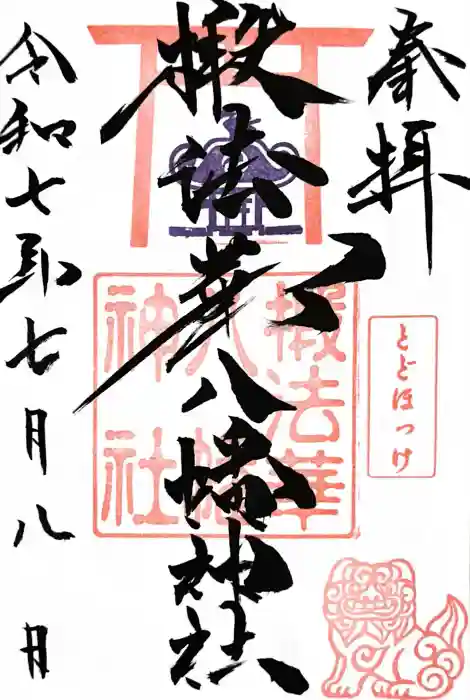 奉拝
椴法華八幡神社
椴法華八幡神社
とどほっけ
令和七年七月八日